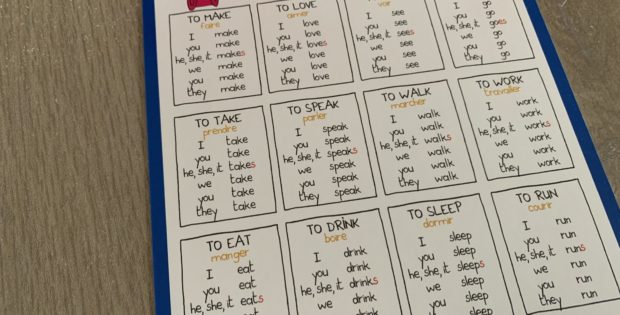 TO MAKE
faire
I make
you make
he, she, it makes
we make
you make
they make
TO LOVE
aimer
I love
you love
he, she, it loves
we love
you love
they love
voir
I see
you see
he, she, it sees
we see
you see
they see
I go
you go
he, she, it goes
we go
you go
they go
TO TAKE
prendre
I take
you take
he, she, it takes
we take
you take
they take
TO SPEAK
parler
I speak
you speak
he, she, it speaks
we speak
you speak
they speak
TO WALK
marcher
I walk
you walk
he, she, it walks
we walk
you walk
they walk
TO WORK
travailler
I work
you work
he, she, it works
we work
you work
they work
TO EAT
manger
I eat
you eat
he, she, it eats
we eat
you eat
TO DRINK
boire
I drink
you drink
he, she, it drinks
we drink
you drink
TO SLEEP
dormir
I sleep
you sleep
he, she, it sleeps
we sleep
you sleep
they sleep
TO RUN
courir
I run
you run
he, she, it runs
we run
you run
they run